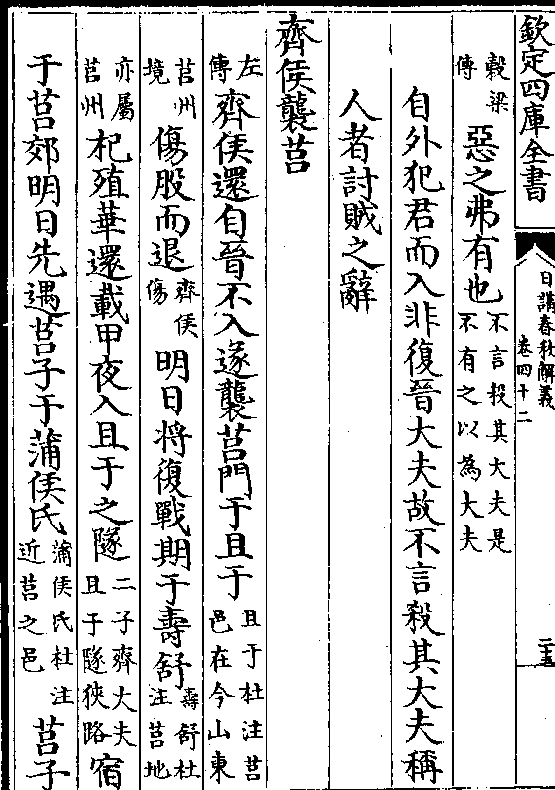 欽定四庫全書
日講春秋解義
卷四十二
二十五
穀梁傳惡之弗有也不言殺其大夫是不有之以為大夫
自外犯君而入非復晉大夫故不言殺其大夫稱
人者討賊之辭
齊侯襲莒
左傳齊侯還自晉不入遂襲莒門于且于且于杜注莒邑在今山東
莒州境傷股而退齊侯傷明日將復戰期于壽舒壽舒杜注莒地
亦屬莒州杞殖華還載甲夜入且于之隧二子齊大夫且于隧狹路宿
于莒郊明日先遇莒子于蒲侯氏蒲侯氏杜注近莒之邑莒子